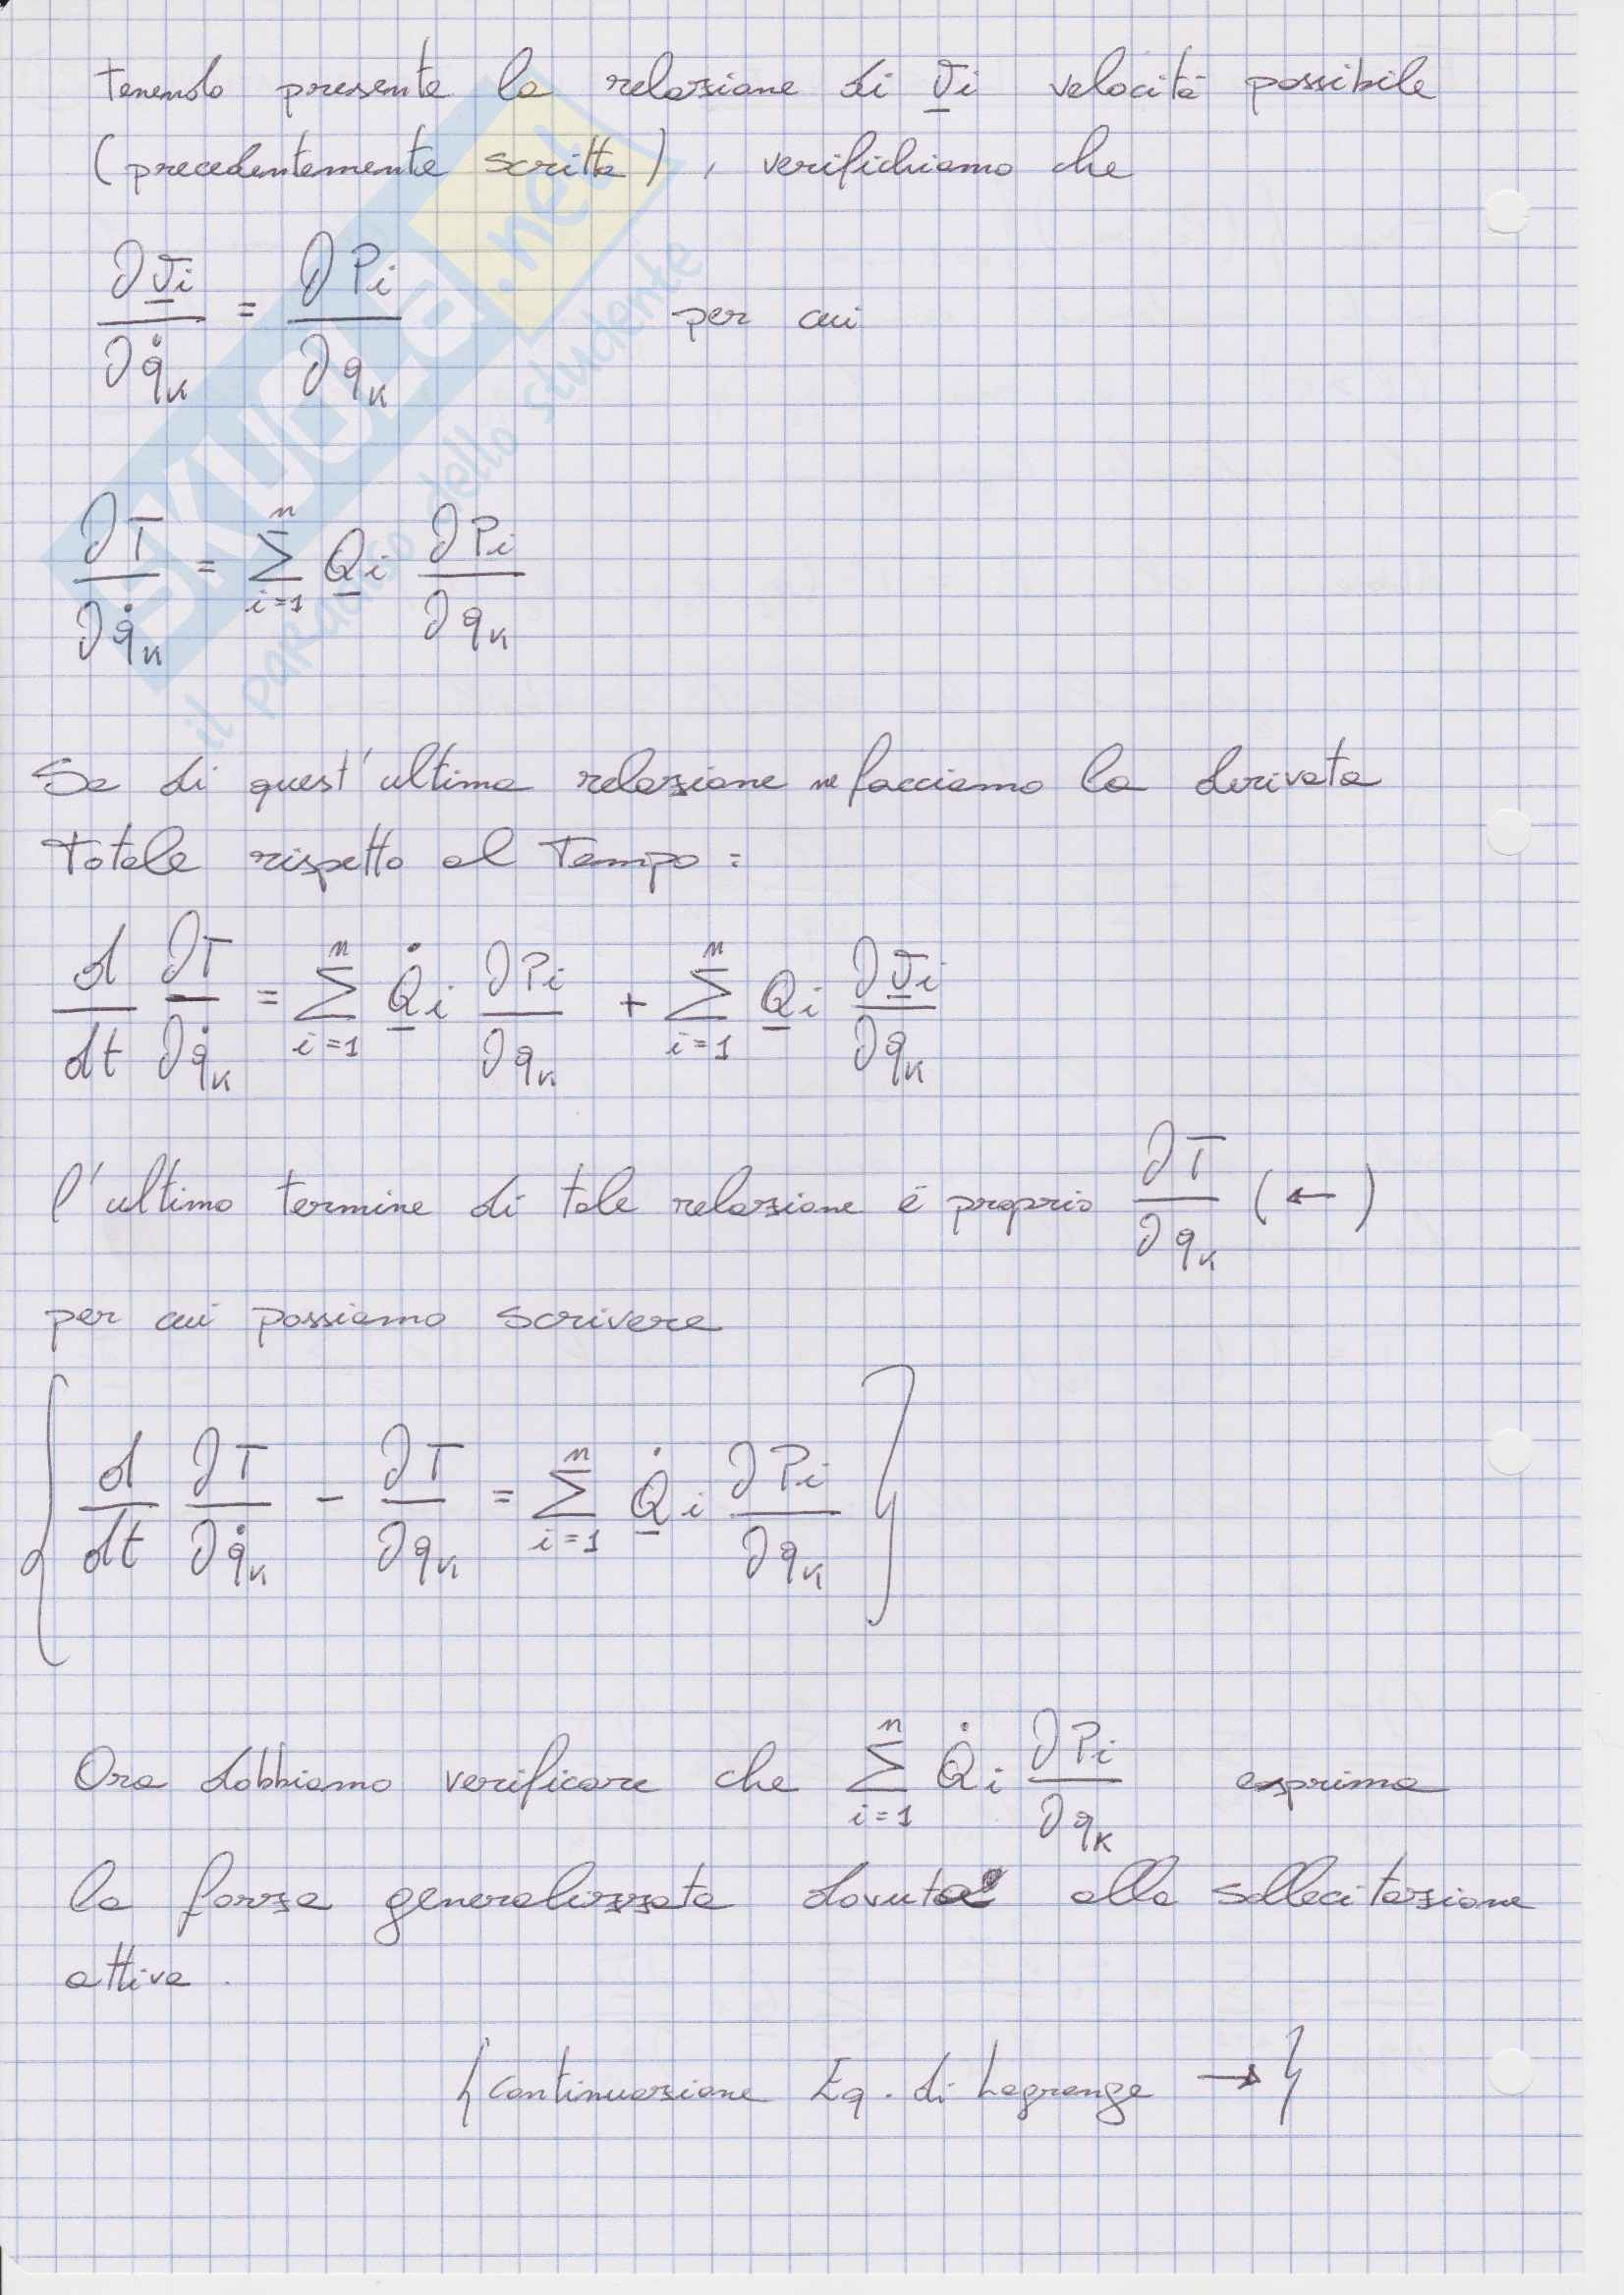 Tenendo presente la relazione di v̲i velocità possibile
(precedentemente scritta), verifichiamo che
∂v̲i/∂q̇k = ∂Pi/∂qk per cui
∂T/∂q̇k = Σ_{i=1}^{n} Q̲i ∂Pi/∂qk
Se di quest'ultima relazione ne facciamo la derivata
totale rispetto al Tempo:
d/dt ∂T/∂q̇k = Σ_{i=1}^{n} Q̲̇i ∂Pi/∂qk + Σ_{i=1}^{n} Q̲i ∂v̲i/∂qk
l'ultimo termine di tale relazione è proprio ∂T/∂qk (←)
per cui possiamo scrivere
{ d/dt ∂T/∂q̇k - ∂T/∂qk = Σ_{i=1}^{n} Q̲̇i ∂Pi/∂qk }
Ora dobbiamo verificare che Σ_{i=1}^{n} Q̇i ∂Pi/∂qk esprima
la forza generalizzata dovuta alla sollecitazione
attiva.
{continuazione Eq. di Lagrange →}
SKUOLA.net
il paradiso dello studente